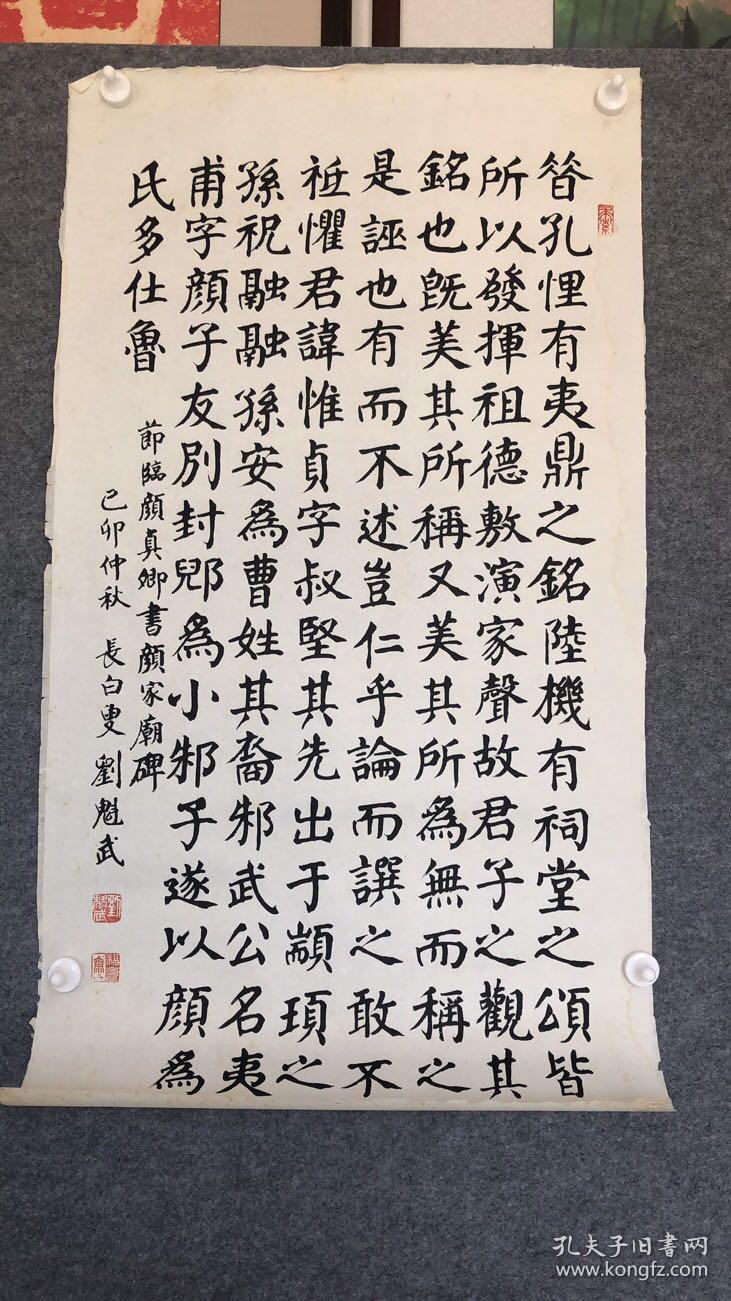 昝孔悝有夷鼎之銘陸機有祠堂之頌皆
所以發揮祖德敷演家聲故君子之觀其
銘也旣美其所稱又美其所為無而稱之
是誣也有而不述豈仁乎論而譔之敢不
祗懼君諱惟貞字叔堅其先出于顓頊之
孫祝融融孫安為曹姓其裔邾武公名夷
甫字顏子友別封郳為小邾子遂以顏為
氏多仕魯
節臨顏真卿書顏家廟碑
己卯仲秋 長白叟 劉魁武
孔夫子旧书网
www.kongfz.com